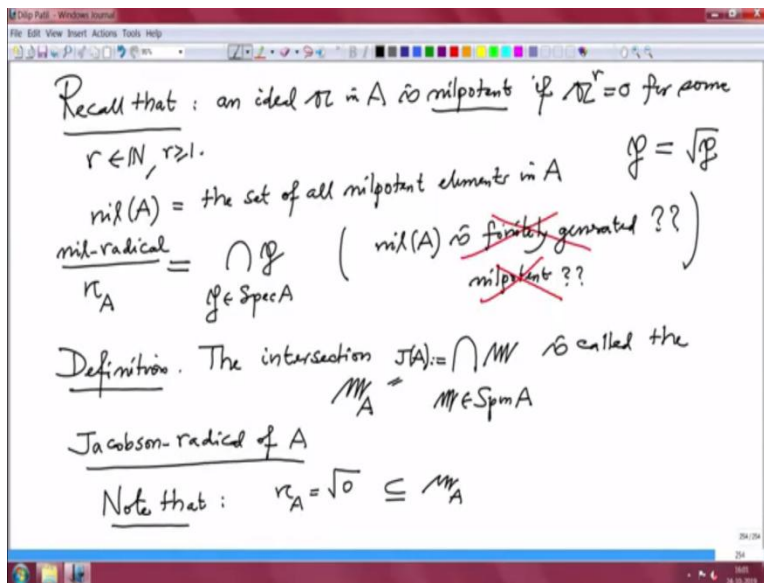 Dilip Patil - Windows Journal
File Edit View Insert Actions Tools Help
Recall that : an ideal 𝔞 in A is nilpotent if 𝔞^r = 0 for some
r ∈ ℕ, r ≥ 1.
𝔭 = √𝔭
nil(A) = the set of all nilpotent elements in A
nil-radical = ⋂ 𝔭 ( nil(A) is finitely generated ?? )
𝔫_A 𝔭 ∈ Spec A nilpotent ??
Definition. The intersection J(A) := ⋂ 𝔪 is called the
𝔪_A = 𝔪 ∈ Spm A
Jacobson-radical of A
Note that : 𝔫_A = √0 ⊆ 𝔪_A
254/254
254